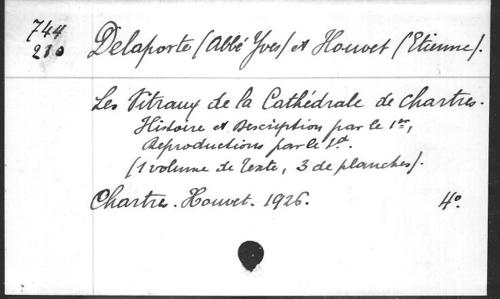 744
210
Delaporte (Abbé Yves) et Houvet (Etienne).
Les Vitraux de la Cathédrale de Chartres.
Histoire et Description par le 1er,
Reproductions par le 2d.
(1 volume de Texte, 3 de planches).
Chartres. Houvet. 1926. 4o